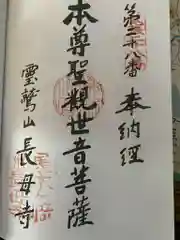 第二十八番 奉納経
本尊聖観世音菩薩
霊鷲山 長母寺